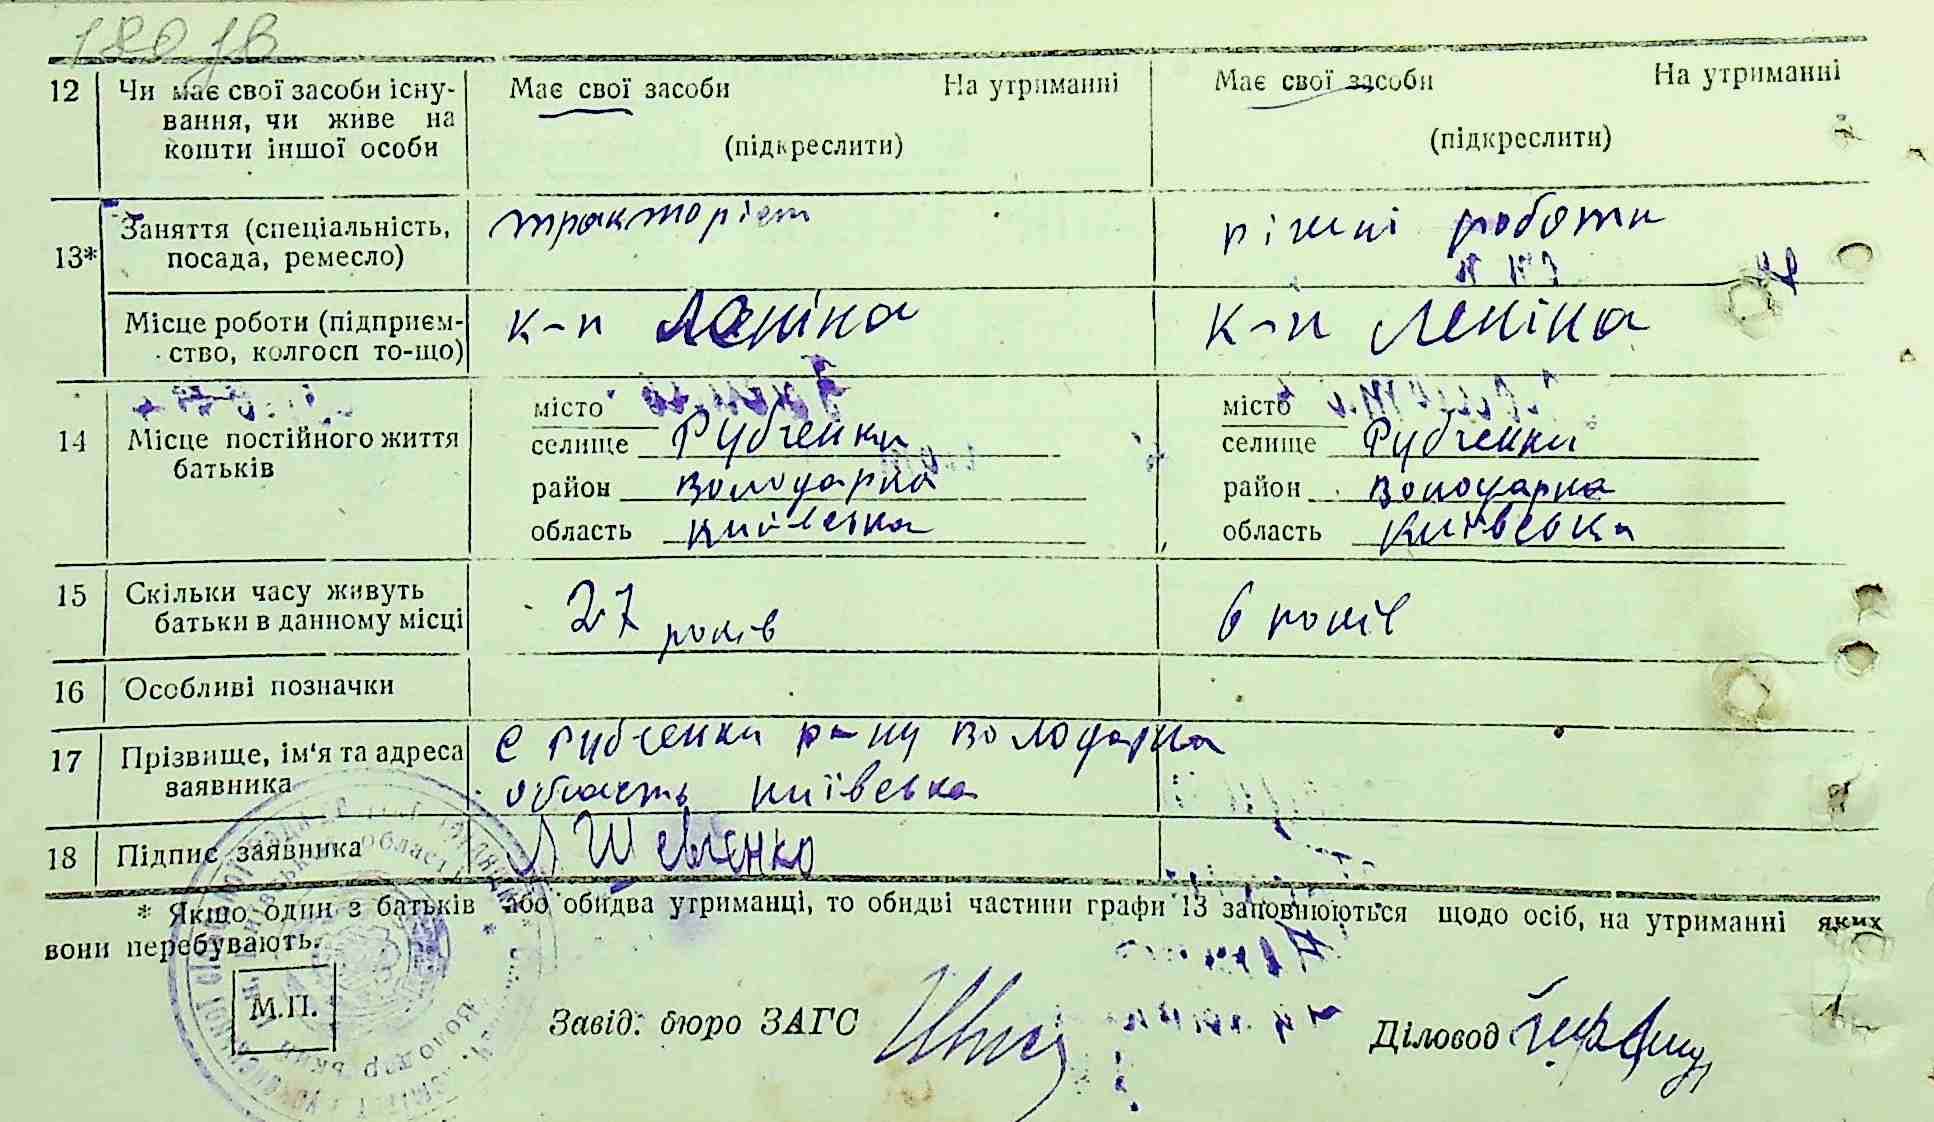 12 Чи має свої засоби існу- Має свої засоби На утриманні Має свої засоби На утриманні
вання, чи живе на
кошти іншої особи (підкреслити) (підкреслити)
13* Заняття (спеціальність, тракторіст ріжні роботи
посада, ремесло)
Місце роботи (підприєм- к-п Леніна к-п Леніна
ство, колгосп то-що)
14 Місце постійного життя місто місто
батьків селище Рубченки селище Рубченки
район Володарка район Володарка
область Київська область Київська
15 Скільки часу живуть 27 років 6 років
батьки в данному місці
16 Особливі позначки
17 Прізвище, ім'я та адреса с Рубченки р-ну Володарка
заявника область Київська
18 Підпис заявника Шевченко
* Якщо один з батьків або обидва утриманці, то обидві частини графи 13 заповнюються щодо осіб, на утриманні яких
вони перебувають.
М.П. Завід. бюро ЗАГС Діловод